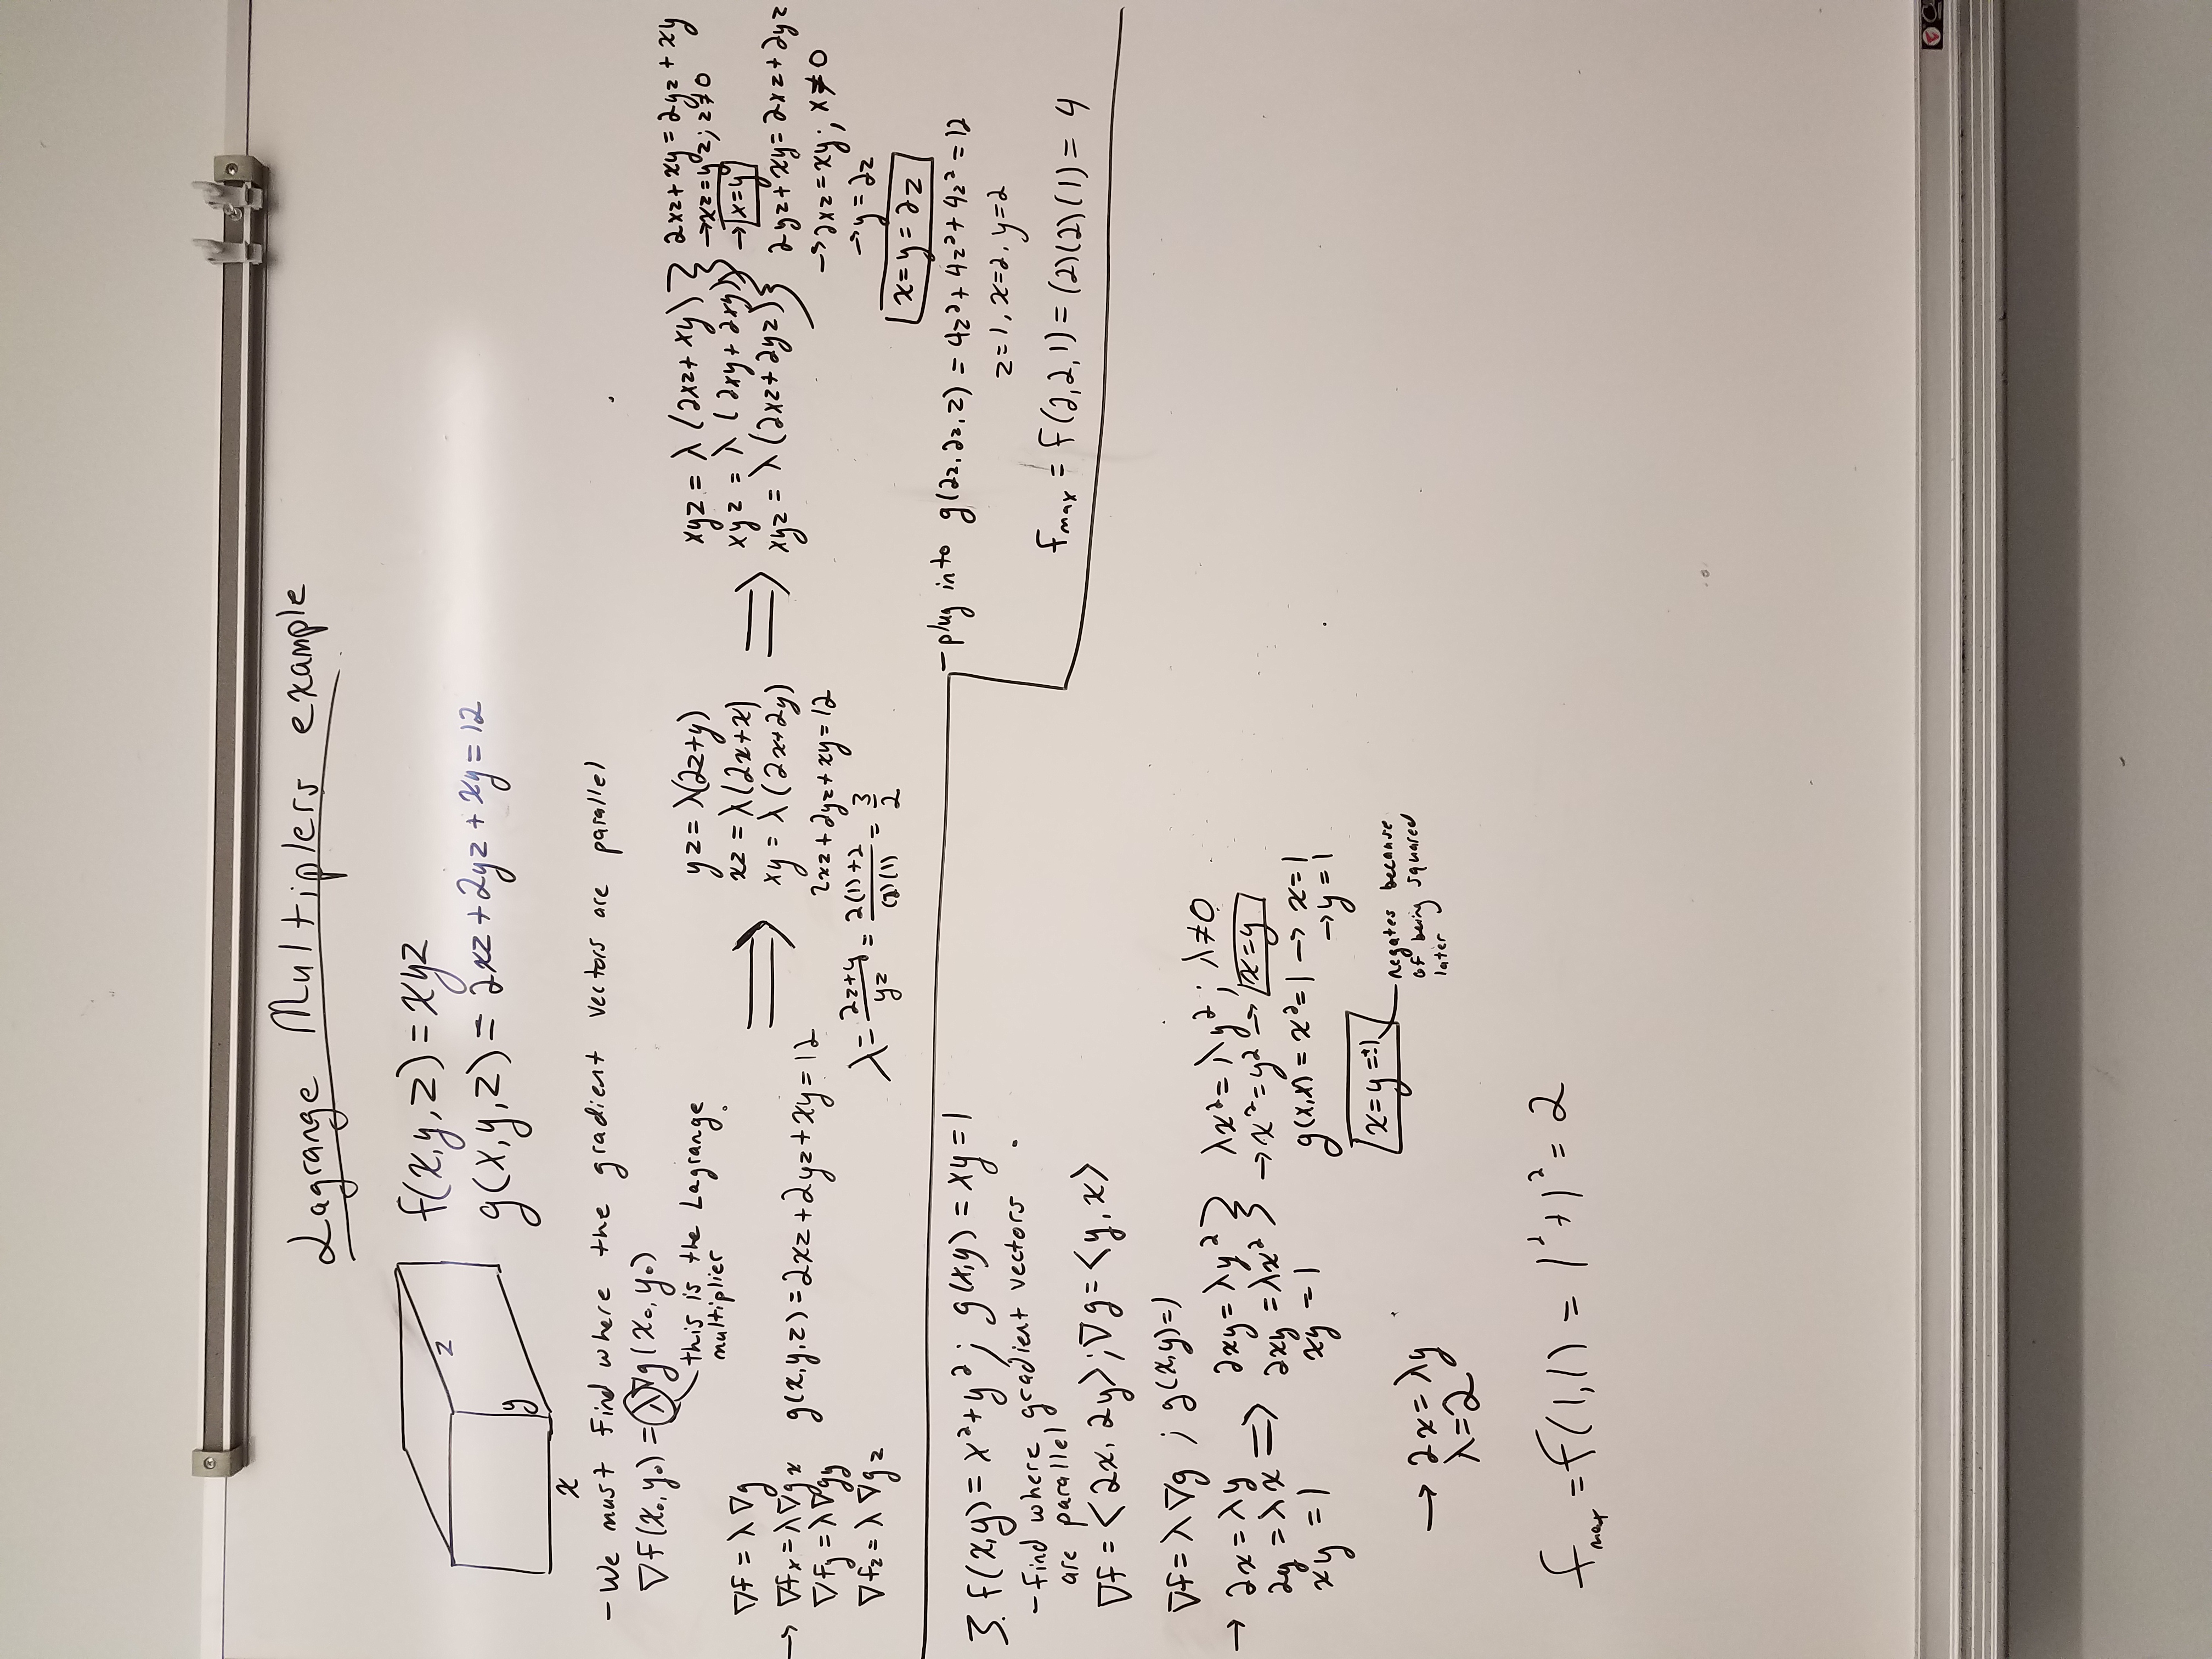 Lagrange Multiplers example
z
y
x
f(x,y,z) = xyz
g(x,y,z) = 2xz + 2yz + xy = 12
- We must find where the gradient vectors are parallel
∇f(x₀,y₀) = λ∇g(x₀,y₀)
this is the Lagrange
multiplier
∇f = λ∇g
→ ∇fx = λ∇gx
∇fy = λ∇gy
∇fz = λ∇gz
g(x,y,z) = 2xz + 2yz + xy = 12
⟹
yz = λ(2z+y)
xz = λ(2x+x)
xy = λ(2x+2y)
2xz + 2yz + xy = 12
λ = (2z+y)/(yz) = (2(1)+2)/((2)(1)) = 3/2
⟹
xyz = λ(2xz + xy)
xyz = λ(2xy + 2xy)
xyz = λ(2xz + 2yz)
2xz + xy = 2yz + xy
→ xz = yz; z≠0
→ x=y
2yz + xy = 2xz + 2yz
→ 2xz = xy; x≠0
→ y = 2z
x = y = 2z
- plug into g(2z, 2z, z) = 4z² + 4z² + 4z² = 12
z=1, x=2, y=2
fmax = f(2,2,1) = (2)(2)(1) = 4
3. f(x,y) = x² + y²; g(x,y) = xy = 1
- find where gradient vectors
are parallel
∇f = <2x, 2y>; ∇g = <y, x>
∇f = λ∇g ; g(x,y)=1
→ 2x = λy
2y = λx
xy = 1
⟹
2xy = λy²
2xy = λx²
xy = 1
λx² = λy²; λ≠0
→ x² = y² → x=y
g(x,x) = x² = 1 → x=1
→ y=1
x = y = ±1
negates because
of being squared
later
→ 2x = λy
λ=2
fmax = f(1,1) = 1² + 1² = 2